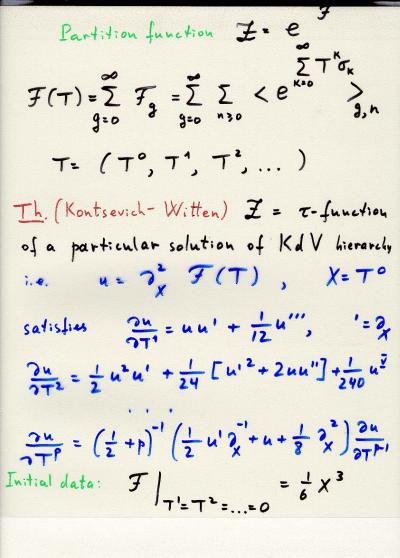 Partition function Z = e^F
F(T) = ∑_{g=0}^{∞} F_g = ∑_{g=0}^{∞} ∑_{n≥0} < e^{∑_{k=0}^{∞} T^k σ_k} >_{g,n}
T = (T^0, T^1, T^2, ...)
Th. (Kontsevich-Witten) Z = τ-function
of a particular solution of KdV hierarchy
i.e. u = ∂_x^2 F(T), X = T^0
satisfies ∂u/∂T^1 = uu' + 1/12 u''', ' = ∂_x
∂u/∂T^2 = 1/2 u^2 u' + 1/24 [u'^2 + 2uu''] + 1/240 u^V
. . .
∂u/∂T^p = (1/2 + p)^{-1} (1/2 u' ∂_x^{-1} + u + 1/8 ∂_x^2) ∂u/∂T^{p-1}
Initial data: F |_{T^1=T^2=...=0} = 1/6 X^3